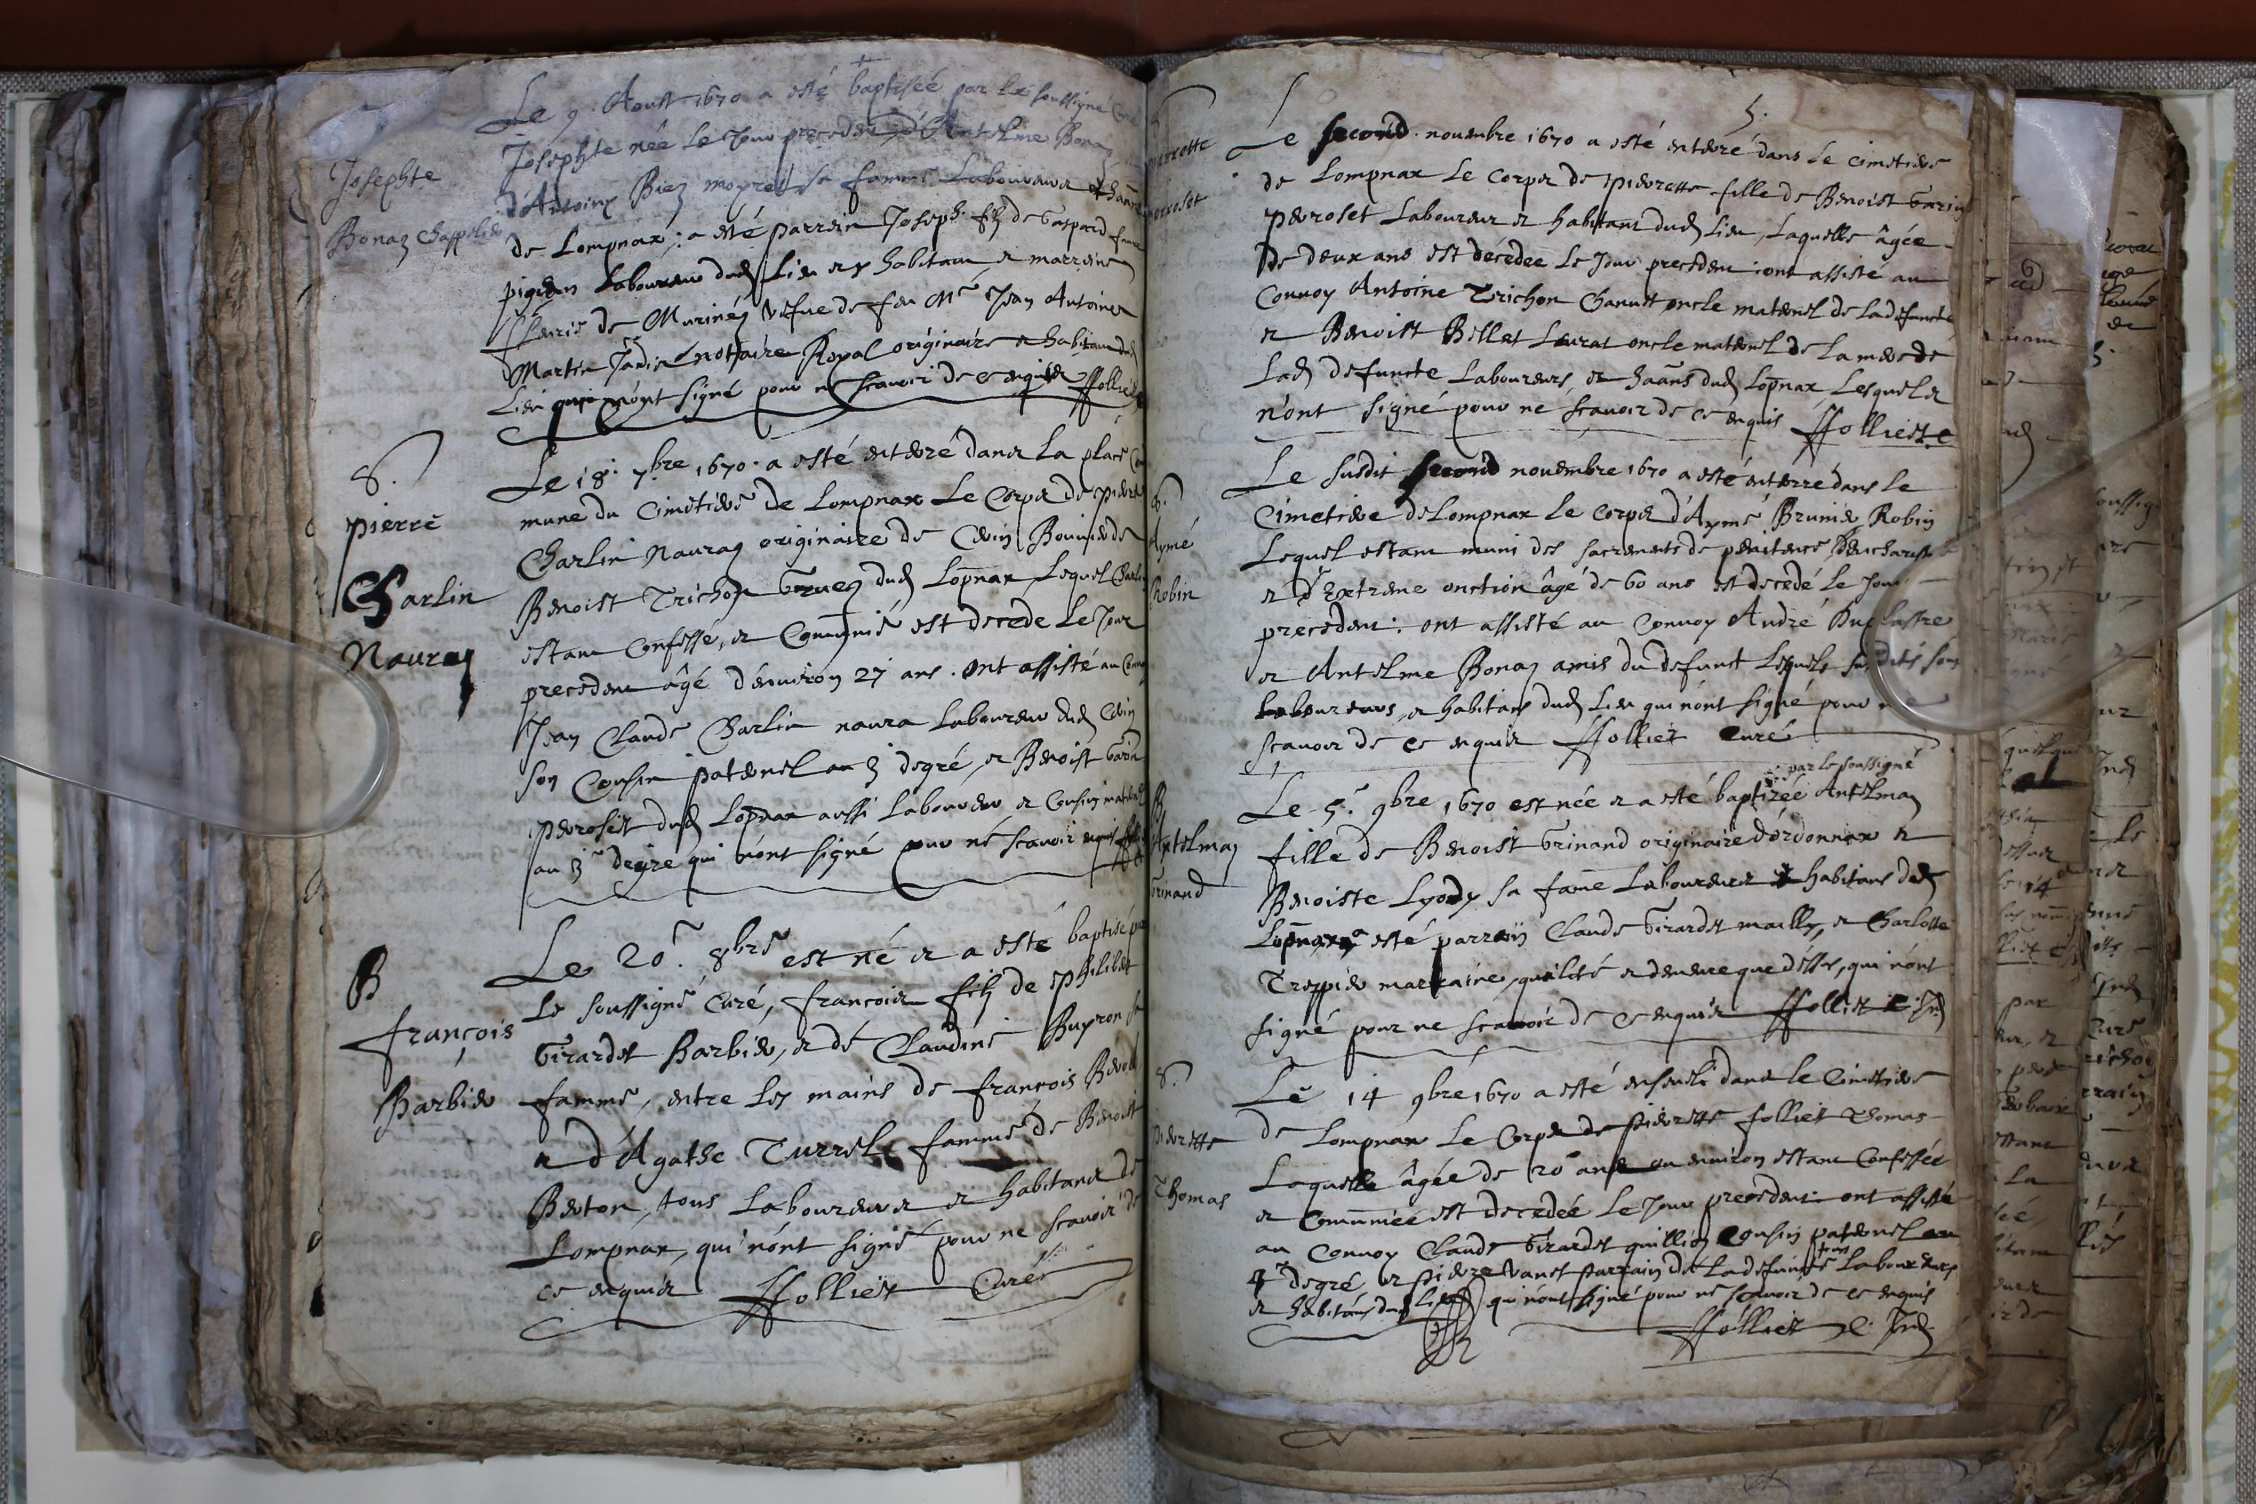 Josephte
Bonaz Chappelier
Le 9. Aoust 1670 a esté baptisée par le soussigné Curé
Josephte née le jour precedent, d'Antelme Bonaz
d'Antoine sa famme Laboureurs
de Lompnax; a esté parrein Joseph filz de Gaspard
Laboureur dud lieu et y habitant, et marreine
de vefue de feu Me Jean Antoine
Martin notaire Royal originaire et habitant dud
Lieu qui n'ont signé pour ne scavoir de ce enquis ffolliet
8.
pierre
Charlin
Nauraz
Le 18. 7bre 1670. a esté enterré dans la place com
mune du Cimetiere de Lompnax Le Corps de pierre
Charlin Nauraz originaire de Bouvier de
Benoist Trichon dud Lopnax, Lequel Charlin
estant Confessé, et Communié est decede Le Jour
precedent âgé d'enuiron 27 ans. ont assisté au Conuoy
Jean Claude Charlin naura Laboureur dud
son Cousin paternel au 3 degré, et Benoist Garin
perroset dud Lopnax aussi Laboureur et Cousin maternel
au 3e degre qui n'ont signé pour né scavoir enquis
B
françois
Barbier
Le 20. 8bre est né et a esté baptisé par
Le soussigné Curé, françois filz de philibert
Girardet Barbier, et de Claudine Buyron sa
famme, entre les mains de françois
et d'Agathe Turrel famme de Benoist
Berton, tous Laboureurs et habitans de
Lompnax, qui n'ont signé pour ne scavoir de
ce enquis ffolliet Curé
5.
pierrette
perroset
Le second. nouembre 1670 a esté enterré dans Le Cimetiere
de Lompnax Le Corps de pierrette fille de Benoist Garin
perroset Laboureur et habitant dud Lieu, Laquelle âgée
de deux ans est decedee Le Jour precedent: ont assisté au
Conuoy Antoine Trichon Chanut oncle maternel de Ladefuncte
et Benoist Billet Laurat oncle maternel de La mere de
Lad defuncte Laboureurs, et haans dud Lopnax, Lesquels
n'ont signé pour ne scavoir de ce enquis ffolliet C
8.
Aymé
Robin
Le susdit second nouembre 1670 a esté enterré dans le
Cimetiere deLompnax Le Corps d'Aymé Brunier Robin
Lequel estant muni des sacrements de penitence,
et d'Extreme onction âgé de 60 ans est decedé Le Jour
precedent: ont assisté au Conuoy André
et Antelme Bonaz amis du defunct Lesquels susdits
Laboureurs, et habitans dud Lieu qui n'ont signé pour ne
scavoir de ce enquis ffolliet Curé
B
Antelmaz
Grinand
par le soussigné
Le 5. 9bre 1670 est née et a esté baptizée Antelmaz
fille de Benoist Grinand originaire d'ordonnax et
Benoiste Lyody sa famme Laboureurs et habitans dud
Lopnax, a esté parrein Claude Girardet mailly, et Charlotte
Trespier marraine, qualité et demeure que dessus, qui n'ont
signé pour ne scavoir de ce enquis ffolliet C.
8.
pierrette
Thomas
Le 14 9bre 1670 a esté enseueli dans le Cimetiere
de Lompnax Le Corps de pierrette folliet Thomas
Laquelle âgée de 20 ans ou enuiron estant Confessée
et Communiée est decedée Le Jour precedent: ont assisté
au Conuoy Claude Girardet quillion Cousin paternel au
4e degré et pierre Vanet parrain de La defuncte tous Laboureurs
et habitans dud Lieu qui n'ont signé pour ne scavoir de ce enquis
ffolliet C.